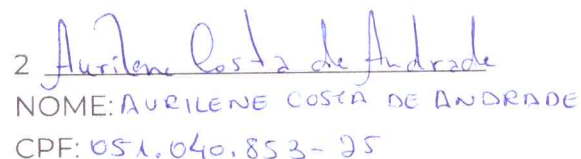 2 Aurilene Costa de Andrade
NOME: AURILENE COSTA DE ANDRADE
CPF: 051.040.853-25